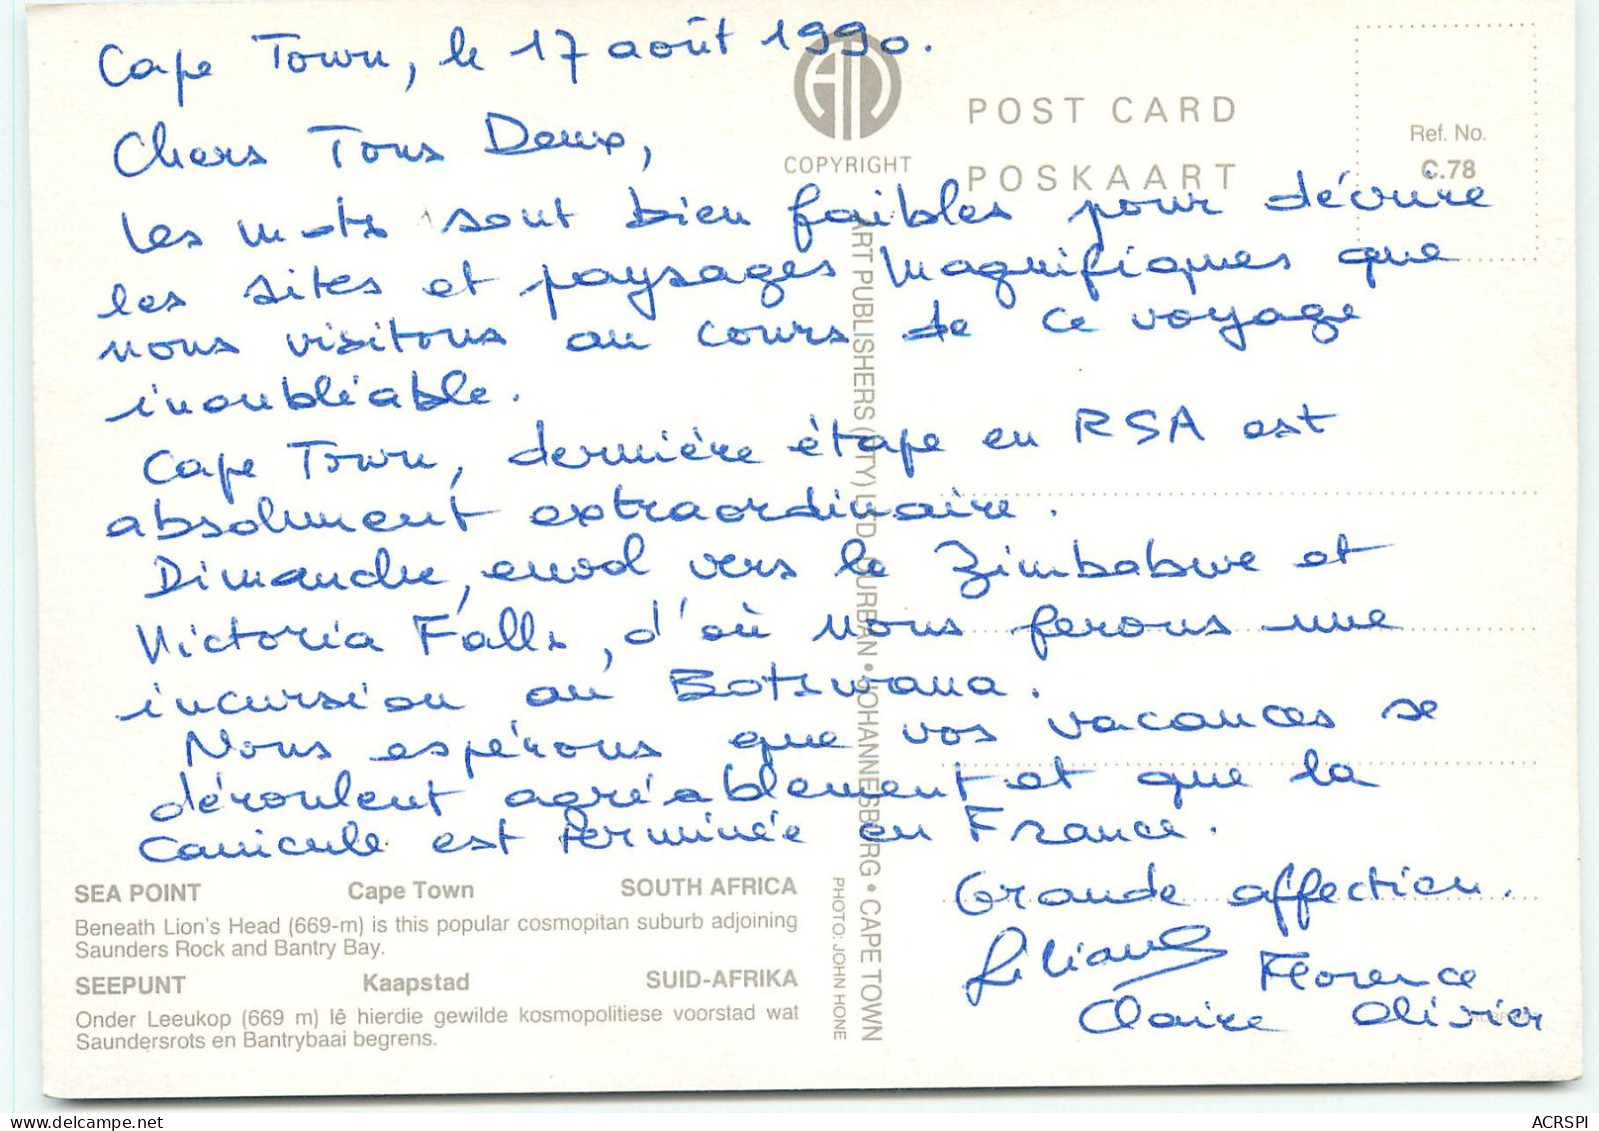 Cape Town, le 17 août 1990.
Chers Tous Deux,
Les mots sont bien faibles pour décrire
les sites et paysages magnifiques que
nous visitons au cours de ce voyage
inoubliable.
Cape Town, dernière étape en RSA est
absolument extraordinaire.
Dimanche, envol vers le Zimbabwe et
Victoria Falls, d'où nous ferons une
incursion au Botswana.
Nous espérons que vos vacances se
déroulent agréablement et que la
canicule est terminée en France.
Grande affection.
Liliane Florence
Claire Olivier
COPYRIGHT
POST CARD
POSKAART
Ref. No.
C.78
ART PUBLISHERS (PTY) LTD. DURBAN • JOHANNESBURG • CAPE TOWN
PHOTO: JOHN HONE
SEA POINT Cape Town SOUTH AFRICA
Beneath Lion's Head (669-m) is this popular cosmopitan suburb adjoining
Saunders Rock and Bantry Bay.
SEEPUNT Kaapstad SUID-AFRIKA
Onder Leeukop (669 m) lê hierdie gewilde kosmopolitiese voorstad wat
Saundersrots en Bantrybaai begrens.
delcampe.net
ACRSPI